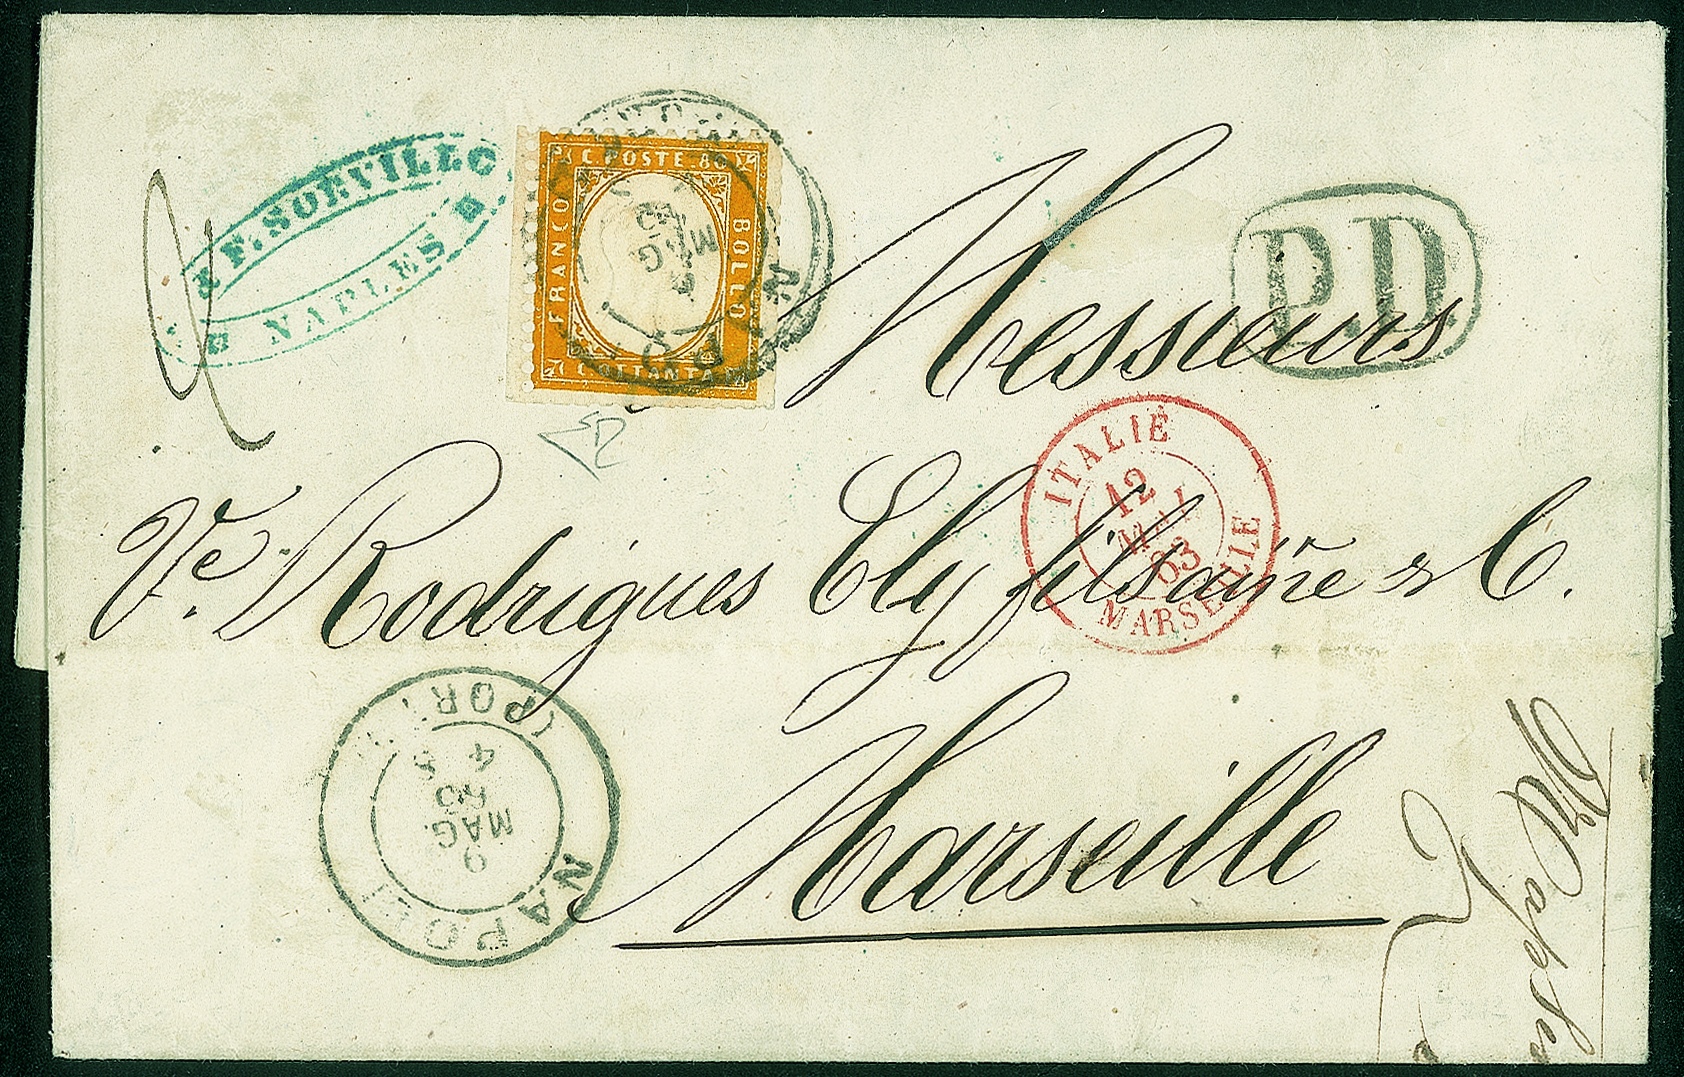 F. SORVILLO
NAPLES
C. POSTE. 80
FRANCO
BOLLO
C. OTTANTA
MAG
63
P.D.
Messieurs
ITALIE
12
MAI
63
MARSEILLE
Ve. Rodrigues Ely fils ainé & C.
Marseille
NAPOLI
(POR
9
MAG
63
4 S